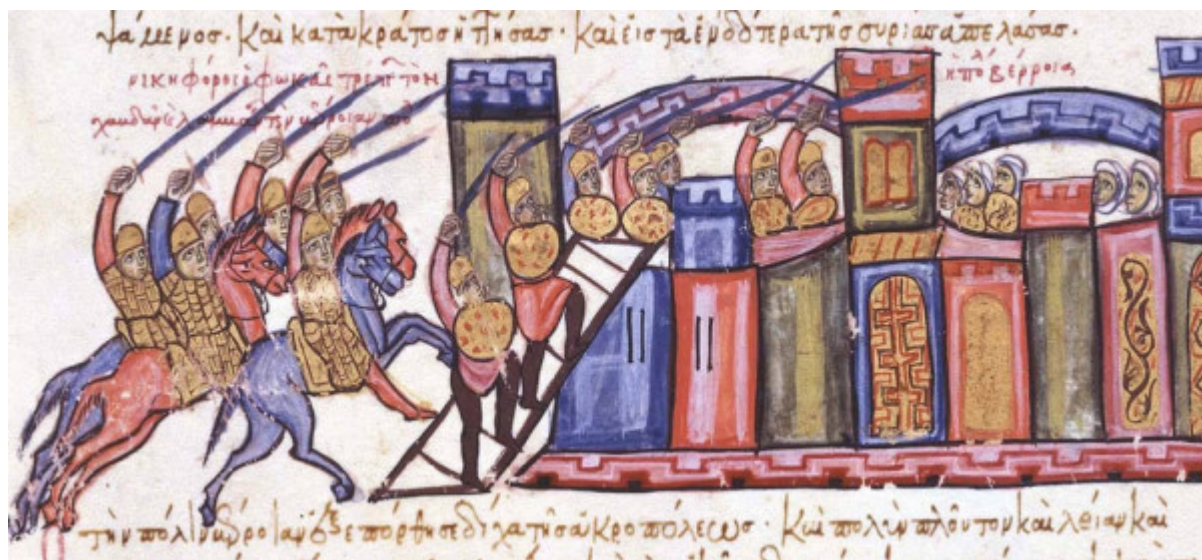 ψάμενος· καὶ κατακράτος ἡττήσας· καὶ εἰς τὰ ἐνδότερα τῆς συρίας ἀπελάσας·
νικηφόρος ὁ φωκᾶς τρέπει τὸν
ἡ πό βέρροια
καὶ τὴν
τὴν πόλιν βέροιαν ἐξεπόρθησε δίχα τῆς ἀκροπόλεως· καὶ πολὺν πλοῦτον καὶ λείαν καὶ